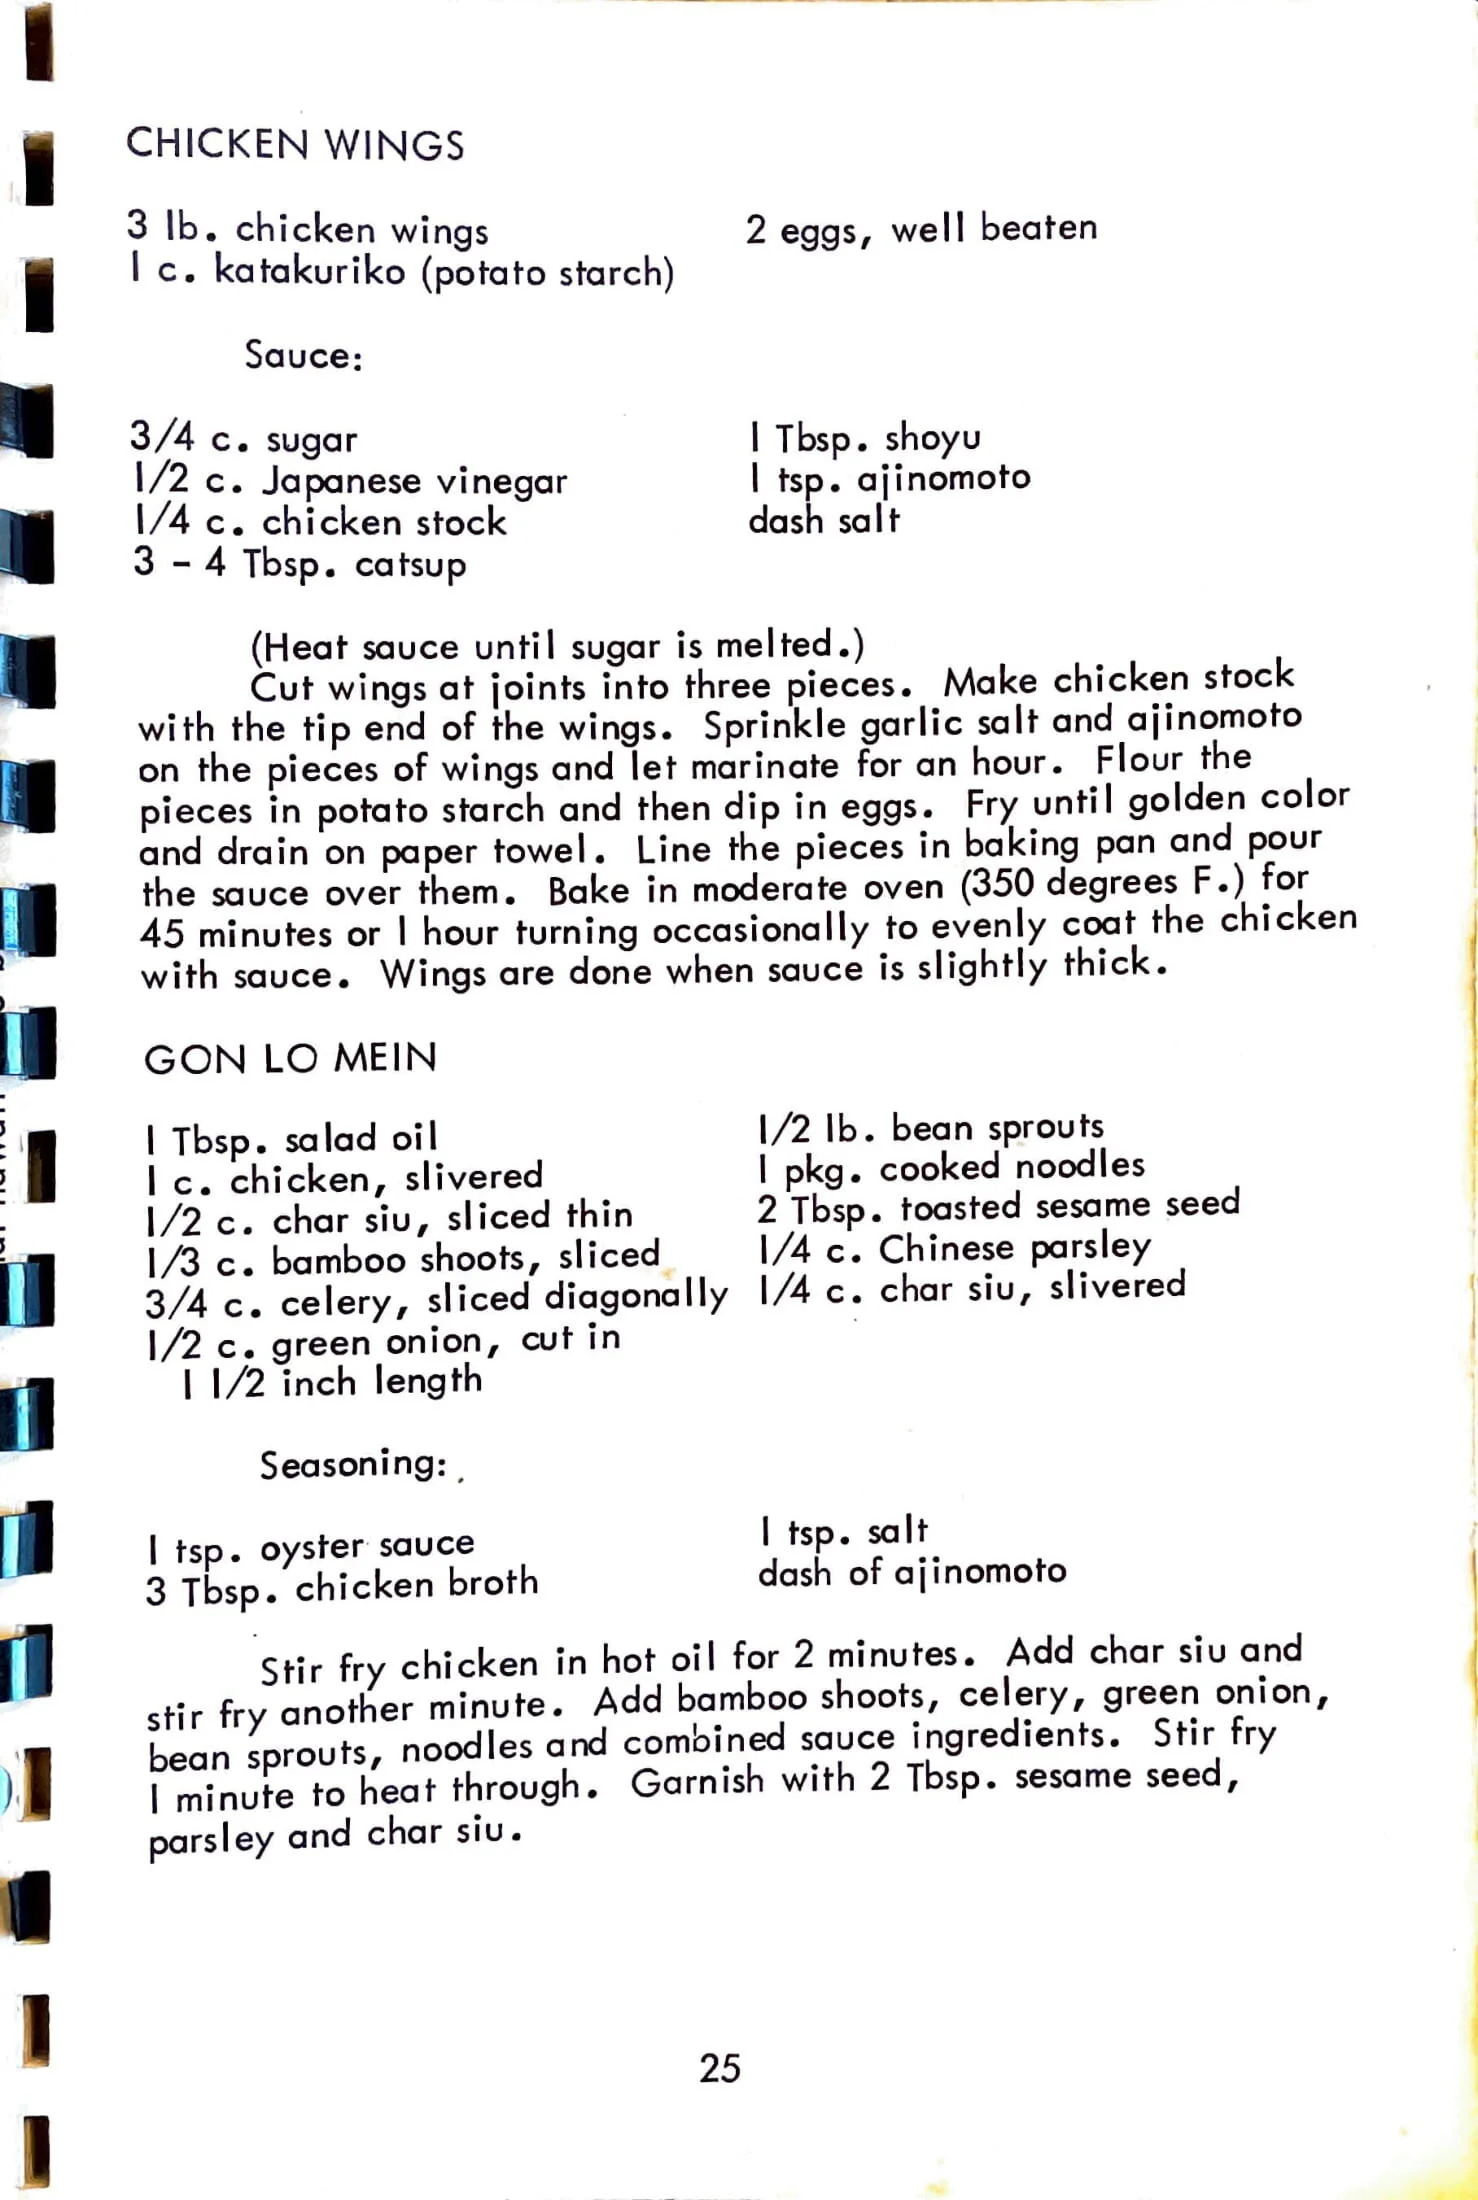 CHICKEN WINGS
3 lb. chicken wings
1 c. katakuriko (potato starch)
2 eggs, well beaten
Sauce:
3/4 c. sugar
1/2 c. Japanese vinegar
1/4 c. chicken stock
3 - 4 Tbsp. catsup
1 Tbsp. shoyu
1 tsp. ajinomoto
dash salt
(Heat sauce until sugar is melted.)
Cut wings at joints into three pieces. Make chicken stock
with the tip end of the wings. Sprinkle garlic salt and ajinomoto
on the pieces of wings and let marinate for an hour. Flour the
pieces in potato starch and then dip in eggs. Fry until golden color
and drain on paper towel. Line the pieces in baking pan and pour
the sauce over them. Bake in moderate oven (350 degrees F.) for
45 minutes or 1 hour turning occasionally to evenly coat the chicken
with sauce. Wings are done when sauce is slightly thick.
GON LO MEIN
1 Tbsp. salad oil
1 c. chicken, slivered
1/2 c. char siu, sliced thin
1/3 c. bamboo shoots, sliced
3/4 c. celery, sliced diagonally
1/2 c. green onion, cut in
1 1/2 inch length
1/2 lb. bean sprouts
1 pkg. cooked noodles
2 Tbsp. toasted sesame seed
1/4 c. Chinese parsley
1/4 c. char siu, slivered
Seasoning:
1 tsp. oyster sauce
3 Tbsp. chicken broth
1 tsp. salt
dash of ajinomoto
Stir fry chicken in hot oil for 2 minutes. Add char siu and
stir fry another minute. Add bamboo shoots, celery, green onion,
bean sprouts, noodles and combined sauce ingredients. Stir fry
1 minute to heat through. Garnish with 2 Tbsp. sesame seed,
parsley and char siu.
25